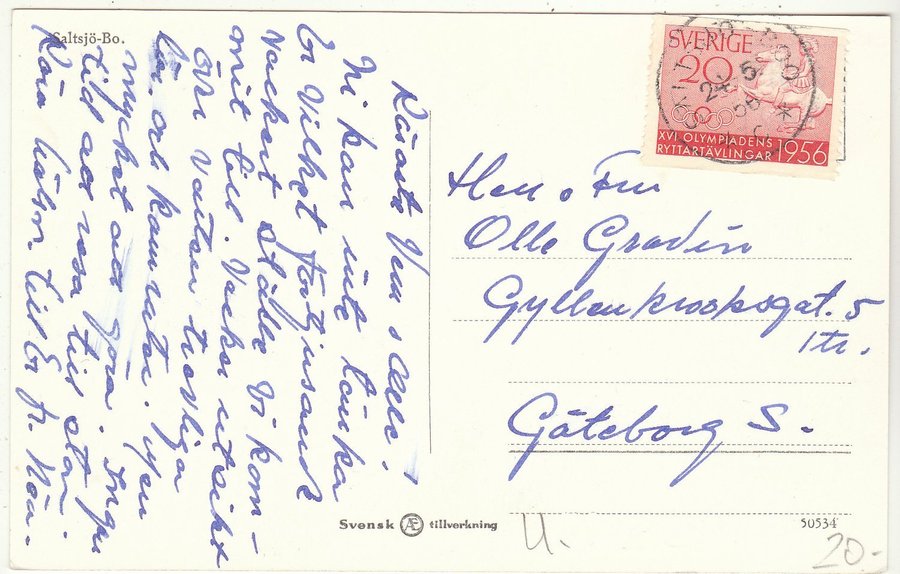 Saltsjö-Bo.
Käraste Vem o Olle!
Ni kan inte tänka
Er vilket förtjusande
vackert ställe vi kom-
mit till. Vacker utsikt
och trevliga
mycket att göra. Inge
tid att resa till stan.
Kära häls. till Er fr.
SVERIGE
20
XVI OLYMPIADENS
RYTTARTÄVLINGAR 1956
Herr o Fru
Olle Gradin
Gyllenkrooksgat. 5
1 tr.
Göteborg S.
Svensk Æ tillverkning
50534
20-